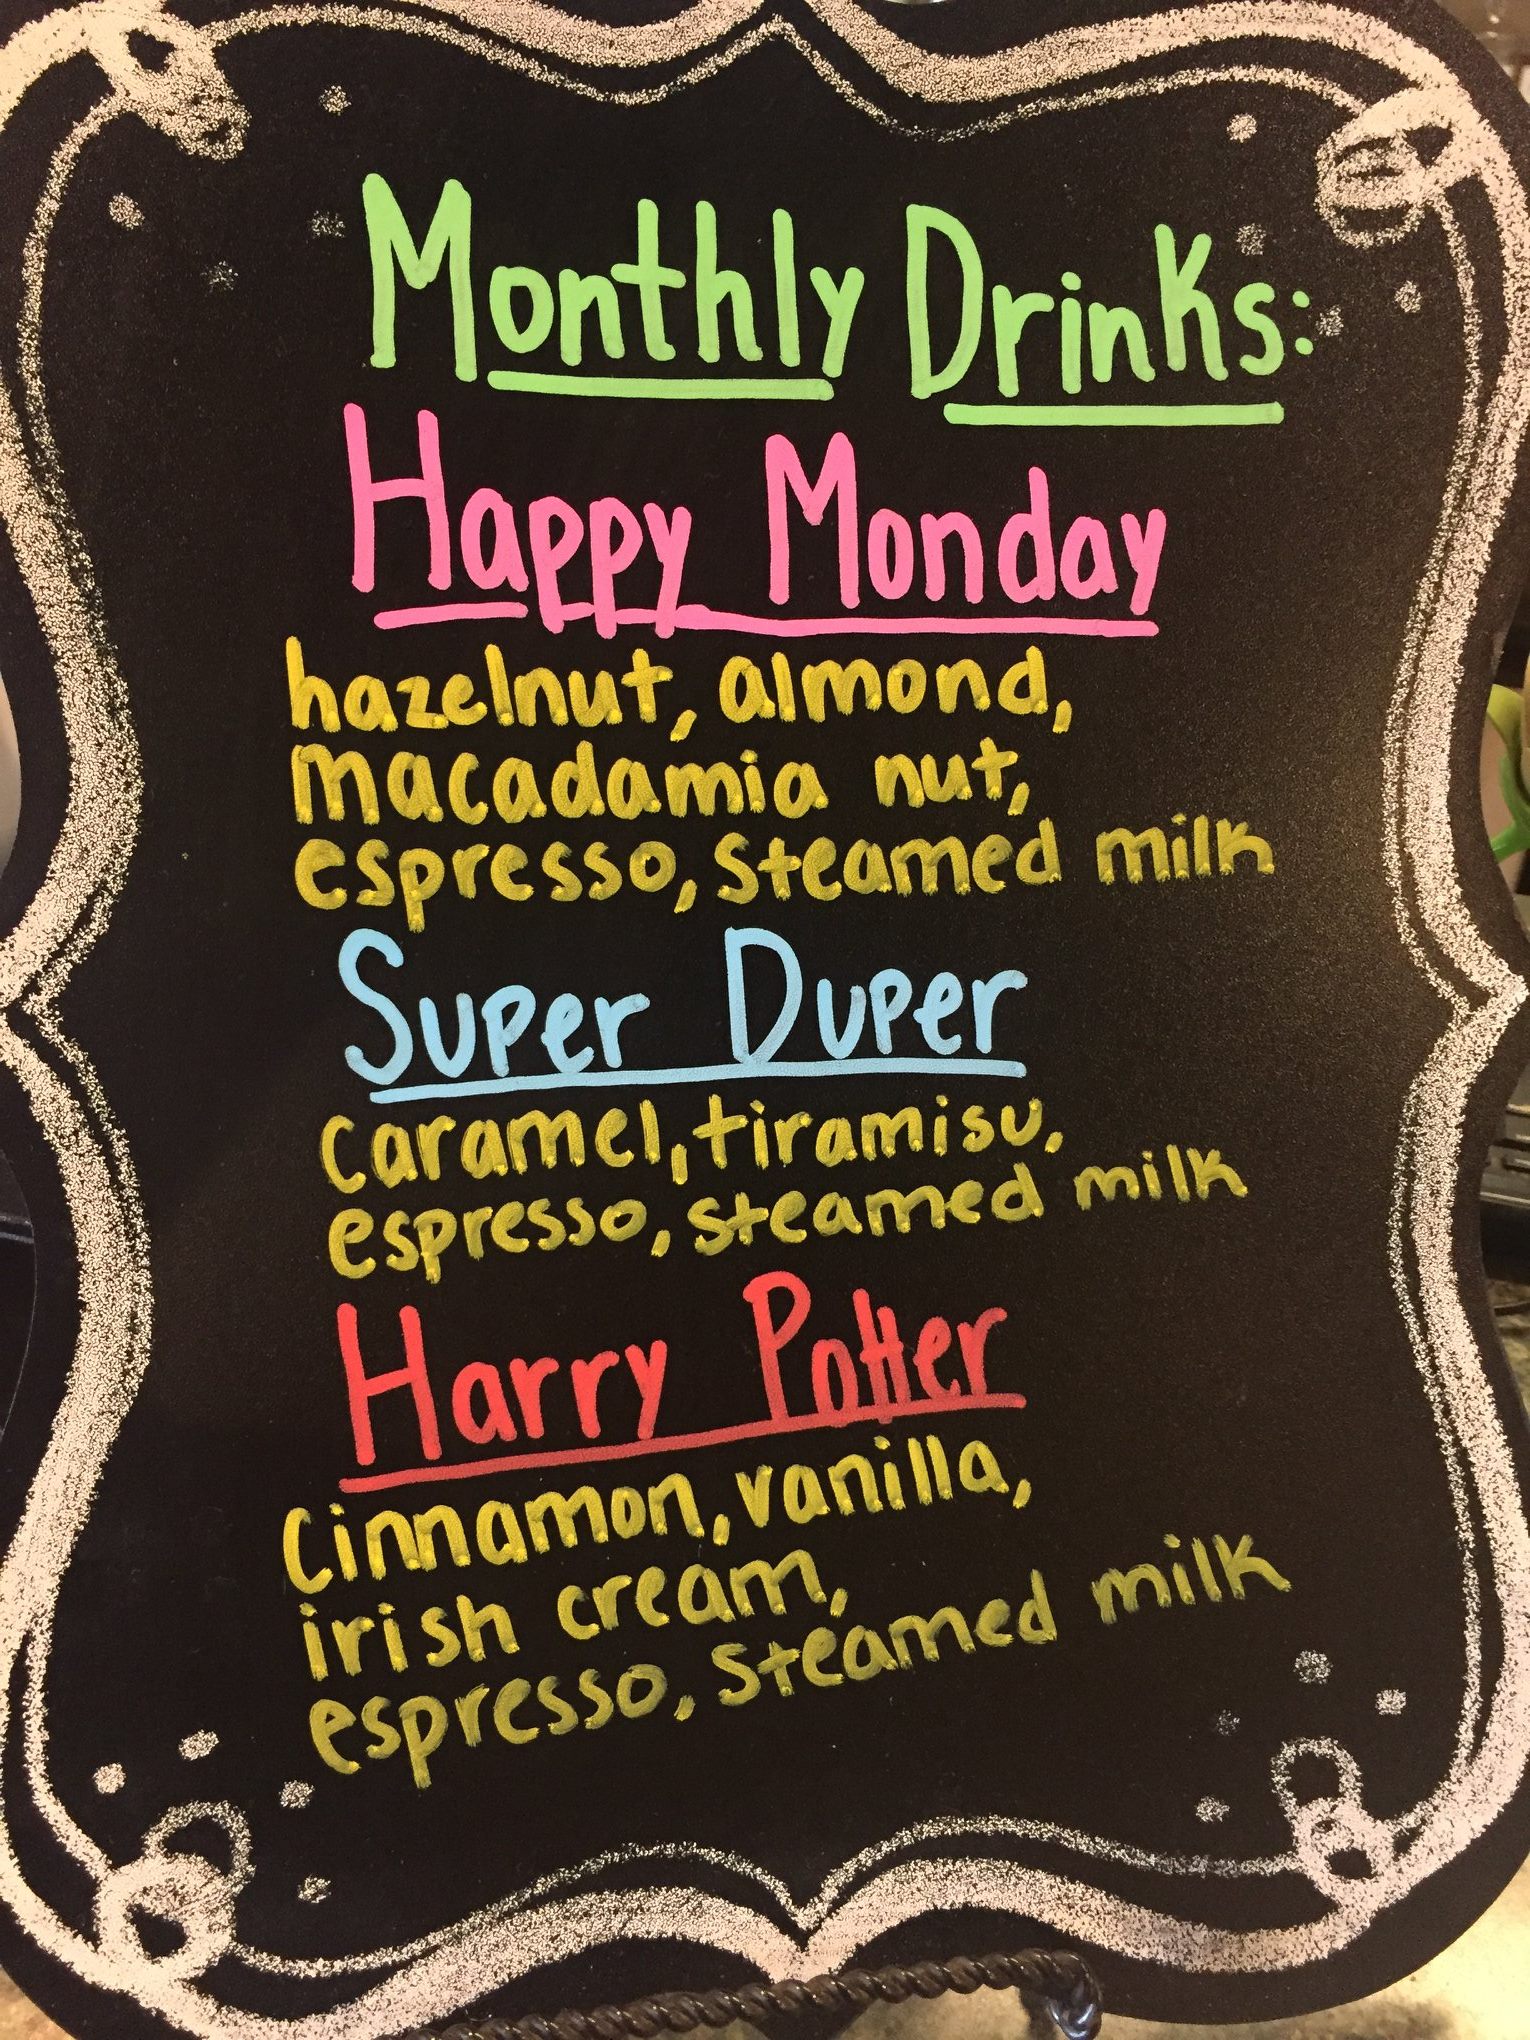 Monthly Drinks:
Happy Monday
hazelnut, almond,
macadamia nut,
espresso, steamed milk
Super Duper
caramel, tiramisu,
espresso, steamed milk
Harry Potter
Cinnamon, vanilla,
irish cream,
espresso, steamed milk